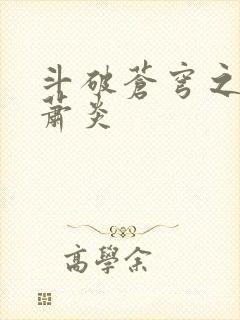 斗破蒼穹之
蕭炎
高學余